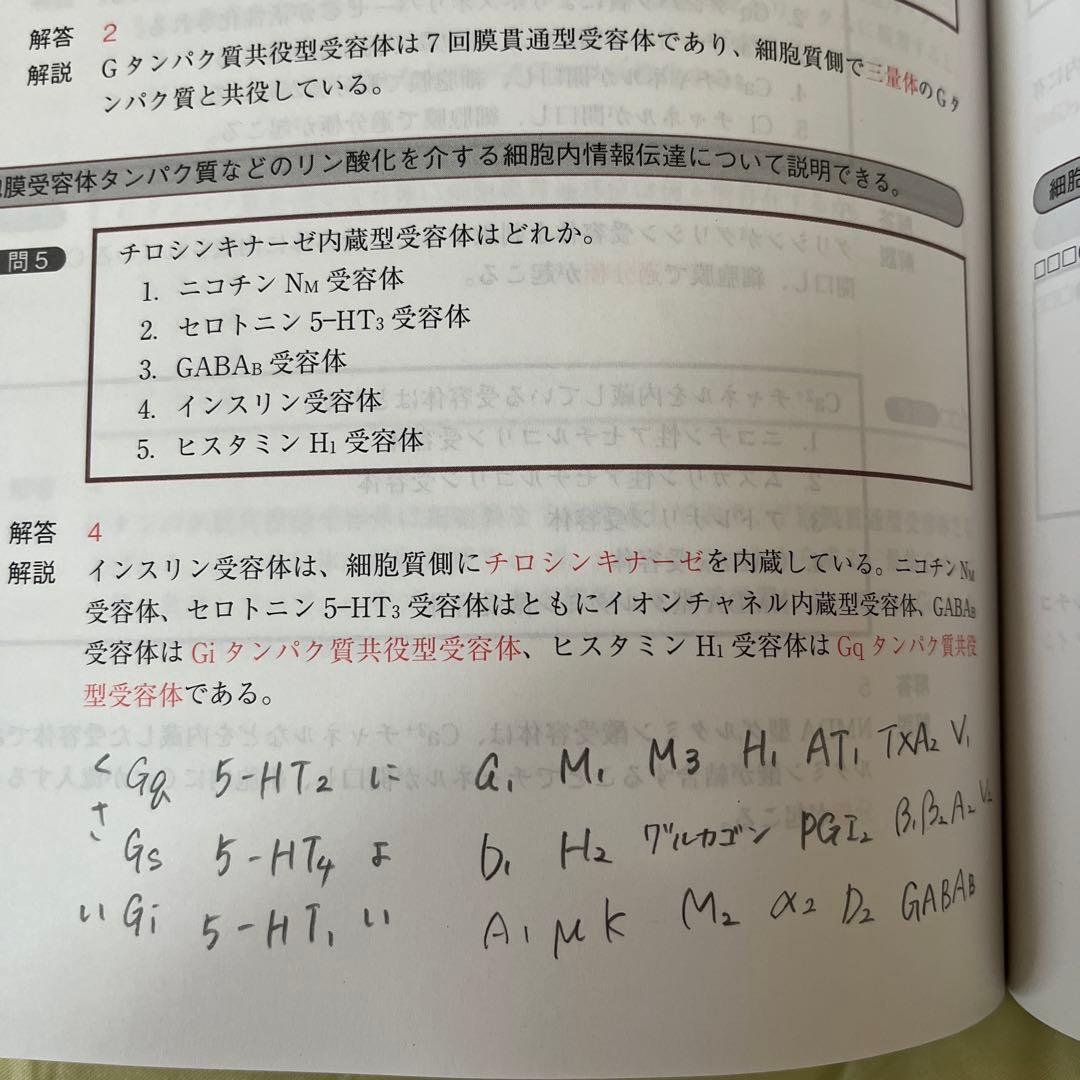 解答 2
解説 Gタンパク質共役型受容体は7回膜貫通型受容体であり、細胞質側で三量体のGタ
ンパク質と共役している。
膜受容体タンパク質などのリン酸化を介する細胞内情報伝達について説明できる。
問5 チロシンキナーゼ内蔵型受容体はどれか。
1. ニコチン NM 受容体
2. セロトニン 5-HT3 受容体
3. GABAB 受容体
4. インスリン受容体
5. ヒスタミン H1 受容体
解答 4
解説 インスリン受容体は、細胞質側にチロシンキナーゼを内蔵している。ニコチン NM
受容体、セロトニン 5-HT3 受容体はともにイオンチャネル内蔵型受容体、GABAB
受容体は Gi タンパク質共役型受容体、ヒスタミン H1 受容体は Gq タンパク質共役
型受容体である。
く Gq 5-HT2 に a1 M1 M3 H1 AT1 TXA2 V1
さ Gs 5-HT4 よ D1 H2 グルカゴン PGI2 β1β2A2 V2
い Gi 5-HT1 い A1 μ K M2 α2 D2 GABAB
細胞